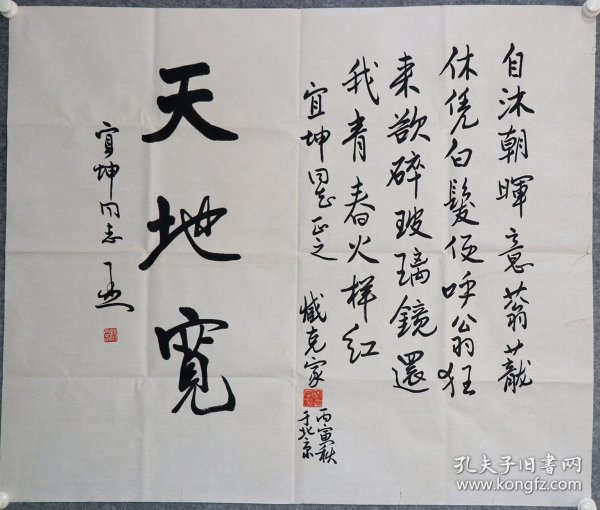 自沐朝暉意蓊蘢
休凭白髮便呼翁狂
来欲碎玻璃鏡還
我青春火样红
宜坤同志正之
臧克家
丙寅秋
于北京
天地寬
宜坤同志
孔夫子旧书网
www.kongfz.com